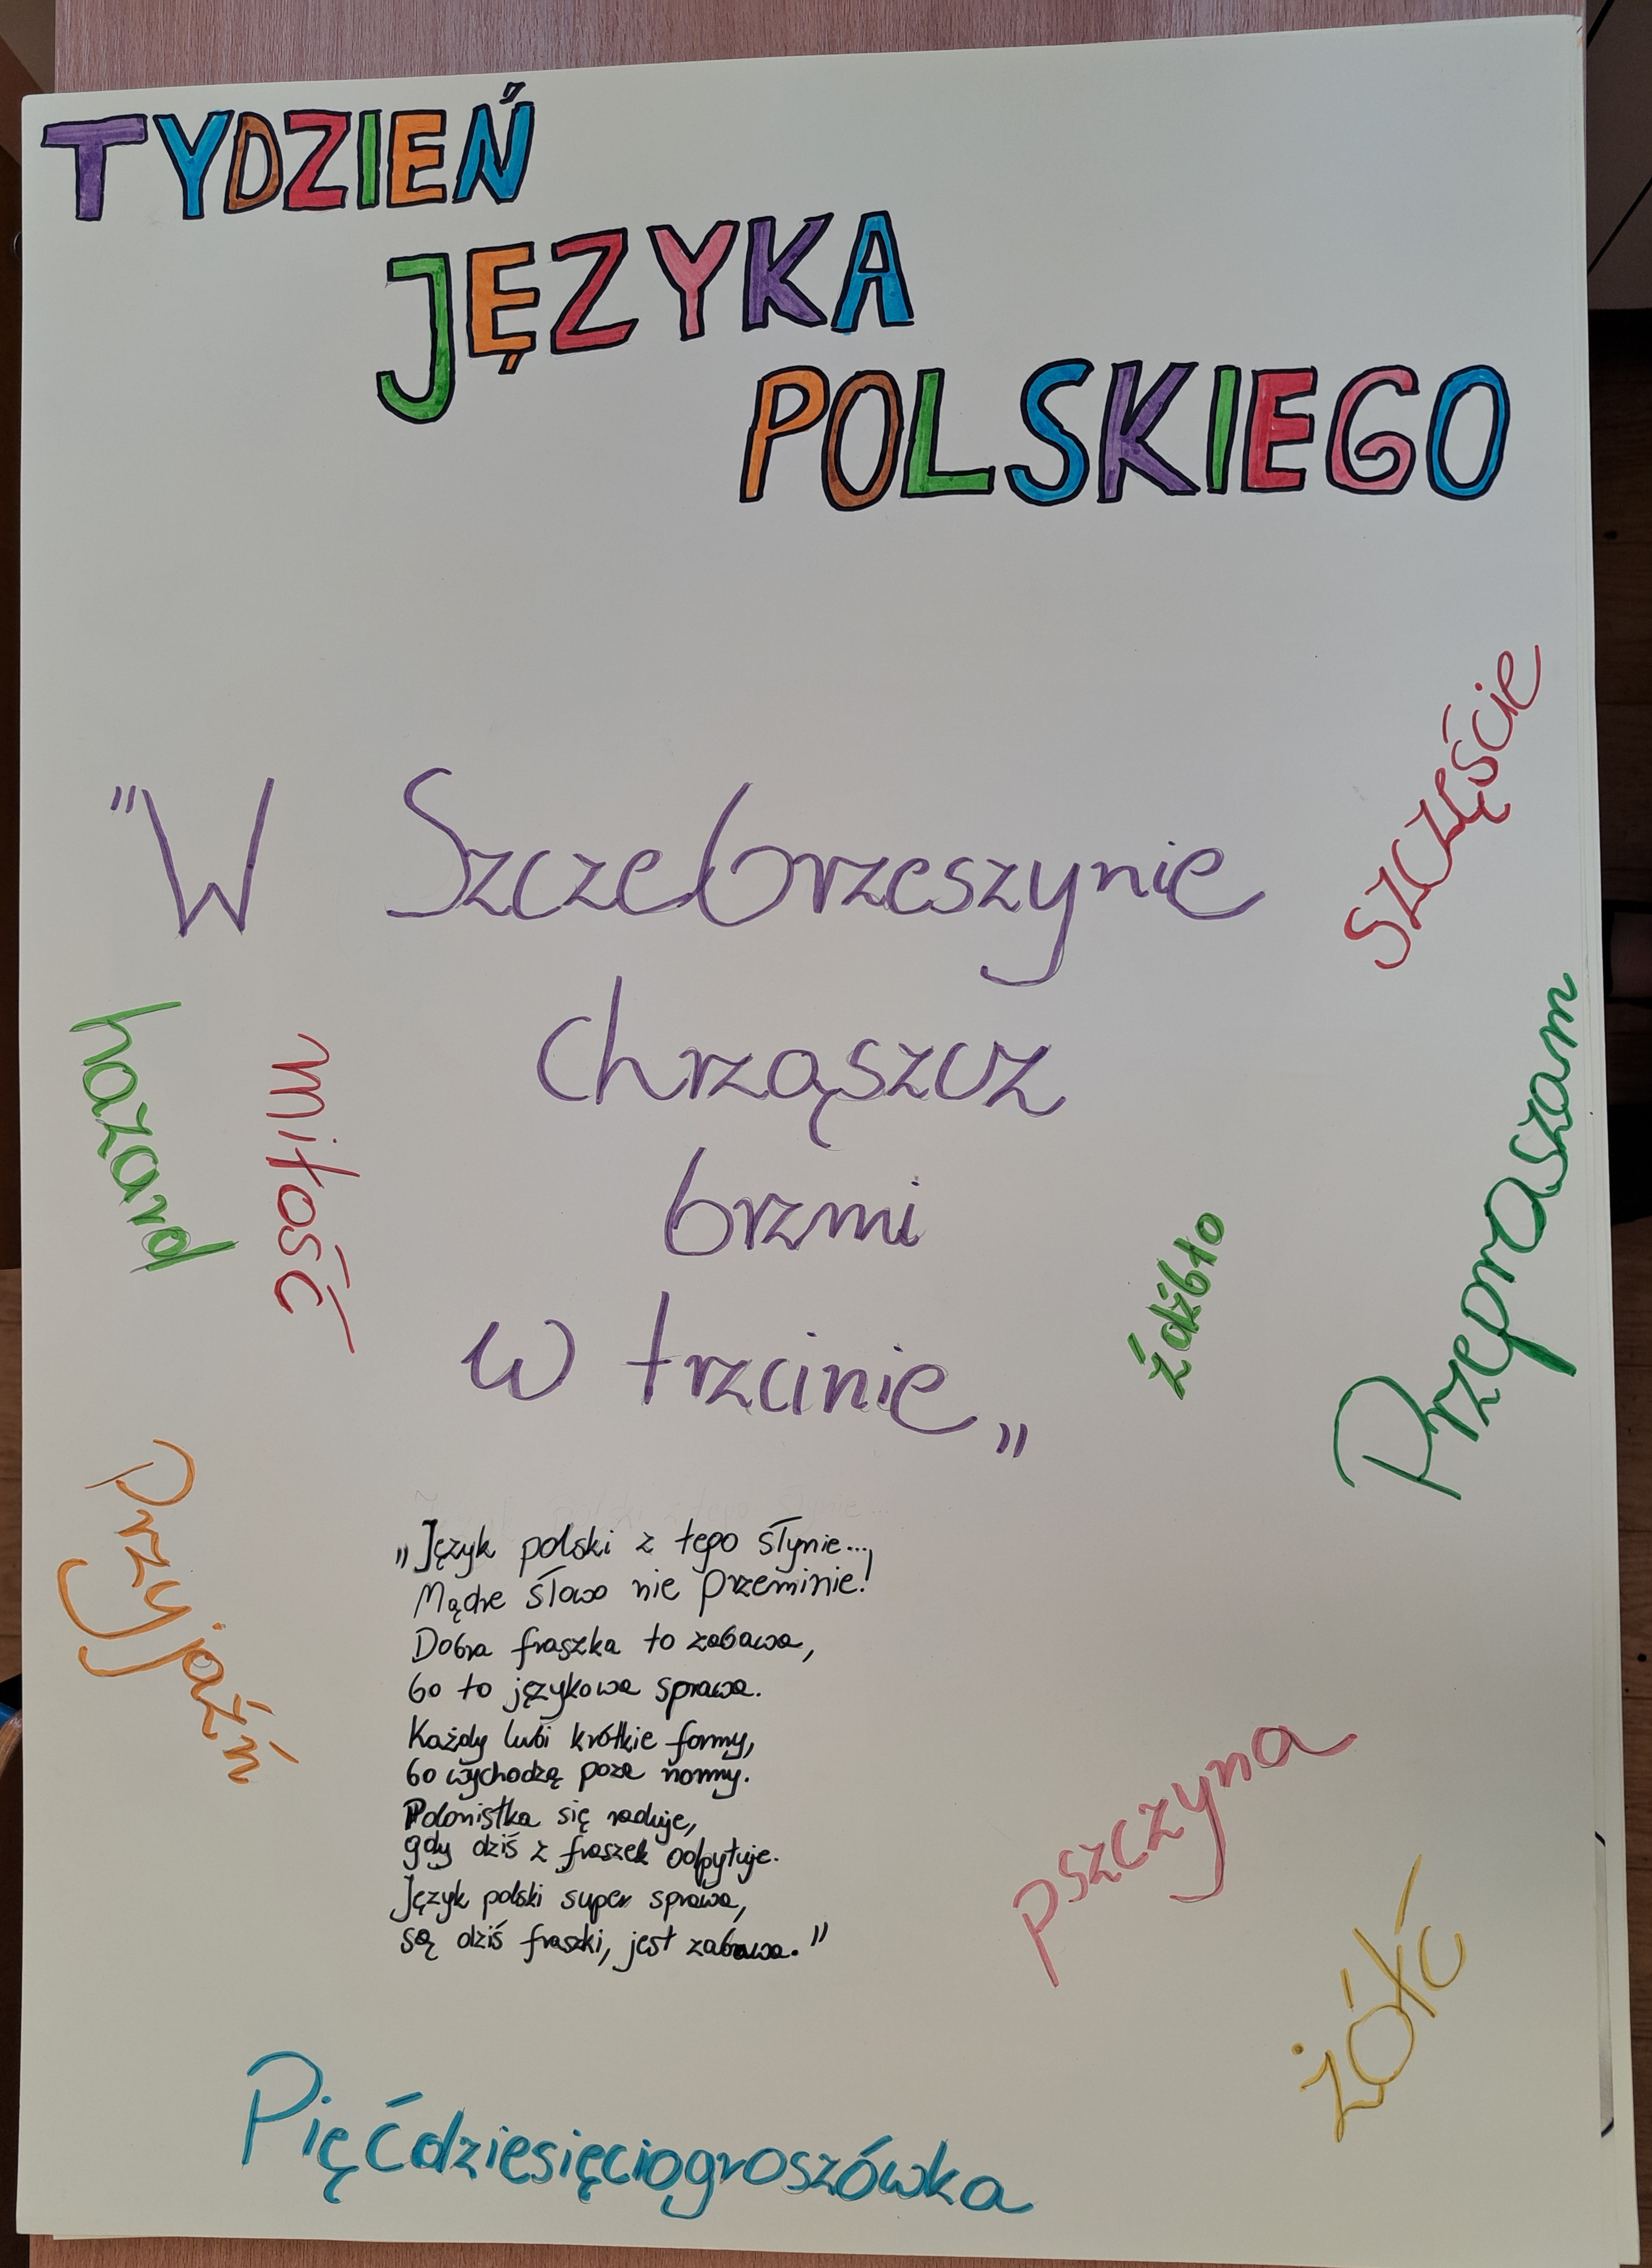 TYDZIEŃ
JĘZYKA
POLSKIEGO
szczęście
"W Szczebrzeszynie
chrząszcz
brzmi
w trzcinie „
hazard
miłość
źdźbło
Przepraszam
Przyjaźń
„Język polski z tego słynie...,
Mądre słowo nie przeminie!
Dobra fraszka to zabawa,
bo to językowa sprawa.
Każdy lubi krótkie formy,
bo wychodzą poza normy.
Polonistka się raduje,
gdy dziś z fraszek odpytuje.
Język polski super sprawa,
są dziś fraszki, jest zabawa."
pszczyna
żółć
Pięćdziesięciogroszówka